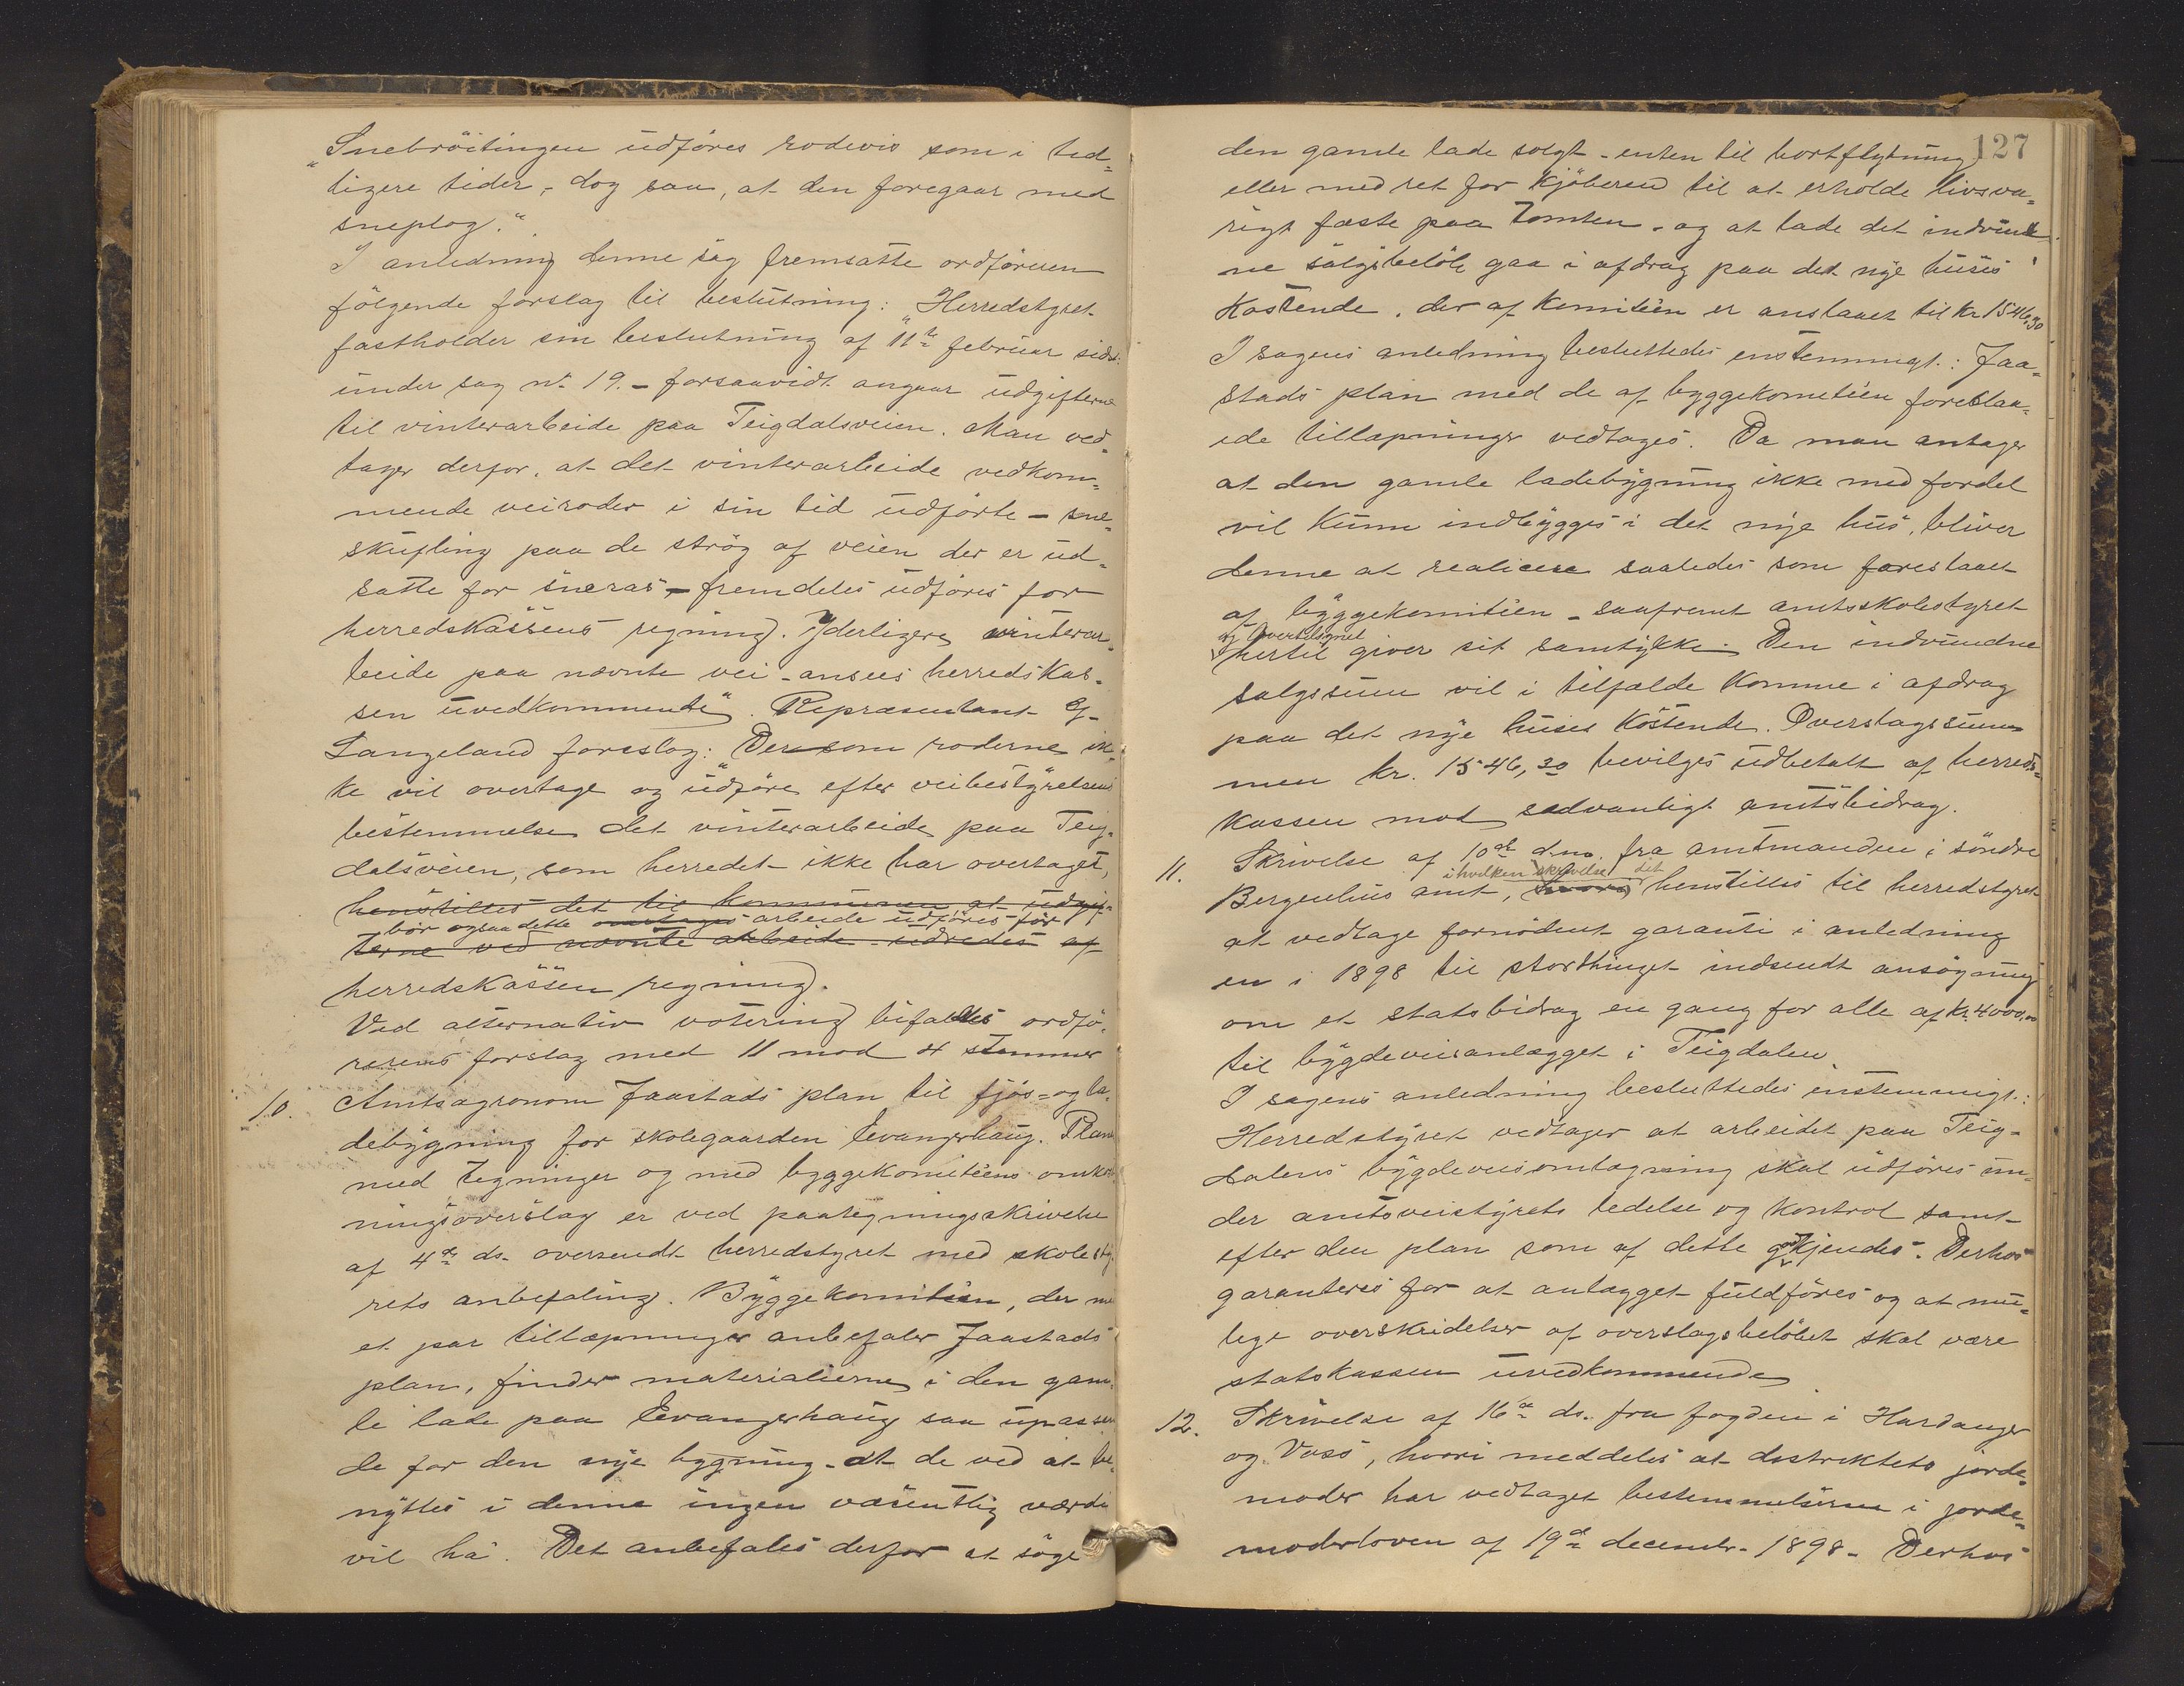 „Snebröitingen udföres rodevis som i tid-
ligere tider, - dog saa, at den foregaar med
sneplog.“
I anledning denne sag fremsatte ordföreren
fölgende forslag til beslutning: „Herredstyret
fastholder sin beslutning af 11te februar sidst.
under sag no. 19. - forsaavidt angaar udgifterne
til vinterarbeide paa Teigdalsveien. Man ved-
tager derfor, at det vinterarbeide vedkom-
mende veiroder i sin tid udförte - sne-
skufling paa de strög af veien der er ud-
satte for sneras - fremdeles udföres for
herredskassens regning. Yderligere vinterar-
beide paa nævnte vei - ansees herredskas-
sen uvedkommende“. Repræsentant
Langeland foreslog: Dersom roderne ik-
ke vil overtage og udföre efter veibestyrelsens
bestemmelse det vinterarbeide paa Teig-
dalsveien, som herredet ikke har overtaget,
henstilles det til kommunen at udgif-
bör ogsaa dette overtages arbeide udföres for
terne ved nævnte arbeide - udredes af
herredskassen regning.
Ved alternativ votering bifaldtes ordfö-
rerens forslag med 11 mod 4 stemmer
10. Amtsagronom Jaastads plan til fjös- og la-
debygning for skolegaarden Evangerhaug. Planen
med tegninger og med byggekomitéens omkost-
ningsoverslag er ved paategningsskrivelse
af 4de ds. oversendt herredstyret med skolesty-
rets anbefaling. Byggekomitéen, der med
et par tillæpninger anbefaler Jaastads
plan, finder materialierne i den gam-
le lade paa Evangerhaug saa upassen-
de for den nye bygning - at de ved at be-
nyttes i denne ingen væsentlig værdi
vil ha. Det anbefales derfor at söge
127
den gamle lade solgt - enten til bortflytning
eller med ret for kjöberen til at erholde livsva-
rigt fæste paa tomten - og at lade det indvund-
ne salgsbelöb gaa i afdrag paa det nye huses
kostende, der af komitéen er anslaaet til kr. 1546,30
I sagens anledning besluttedes enstemmigt: Jaa-
stads plan med de af byggekometéen foreslaa-
ede tillæpninger vedtages. Da man antager
at den gamle ladebygning ikke med fordel
vil kunne indbygges i det nye hus, bliver
denne at realisere saaledes som foreslaaet
af byggekomitéen - saafremt amtsskolestyret
og overtilsynet
hertil giver sit samtykke. Den indvundne
salgssum vil i tilfælde komme i afdrag
paa det nye huses kostende. Overslagssum-
men kr. 1546,30 bevilges udbetalt af herreds-
kassen mod sædvanligt amtsbidrag.
11. Skrivelse af 10de dms. fra amtmanden i söndre
i hvilken skrivelse det
Bergenhus amt, hvori henstilles til herredstyret
at vedtage fornödent garanti i anledning
en i 1898 til storthinget indsendt ansögning
om et statsbidrag en gang for alle af kr. 4000,00
til bygdeveisanlægget i Teigdalen.
I sagens anledning besluttedes enstemmigt:
Herredstyret vedtager at arbeidet paa Teig-
dalens bygdeveisomlægning skal udföres un-
der amtsveistyrets ledelse og kontrol samt
efter den plan som af dette godkjendes. Derhos
garanteres for at anlægget fuldföres og at mu-
lige overskridelser af overslagsbelöbet skal være
statskassen uvedkommende
12. Skrivelse af 16de ds. fra fogden i Hardanger
og Voss, hvori meddeles at destriktets jorde-
moder har vedtaget bestemmelserne i jorde-
moderloven af 19de decembr. 1898. Derhos